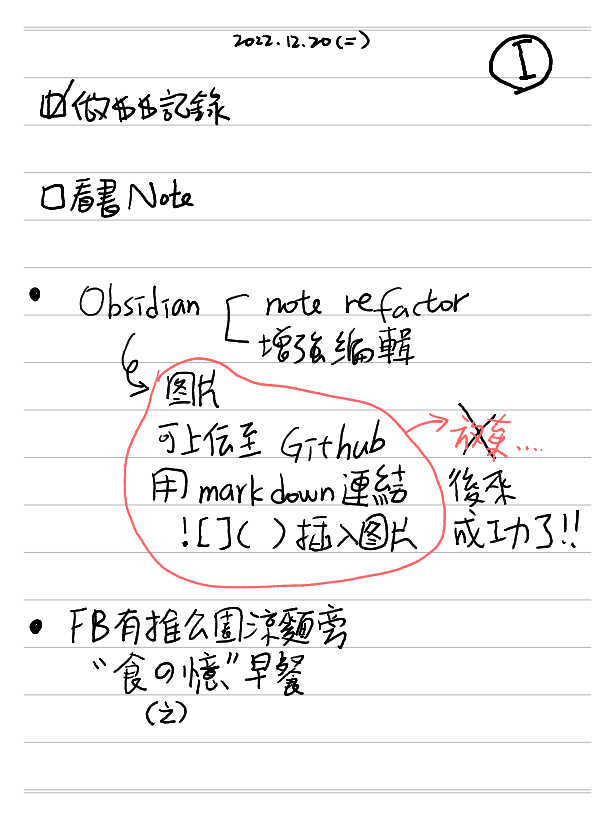 2022.12.20(二)
I
☑做
記錄
□看書Note
• Obsidian note refactor
增強編輯
图片
可上伝至 Github
放棄...
用markdown連結
後來
![]( )插入图片
成功了!!
• FB有推公園涼麵旁
"食の憶"早餐